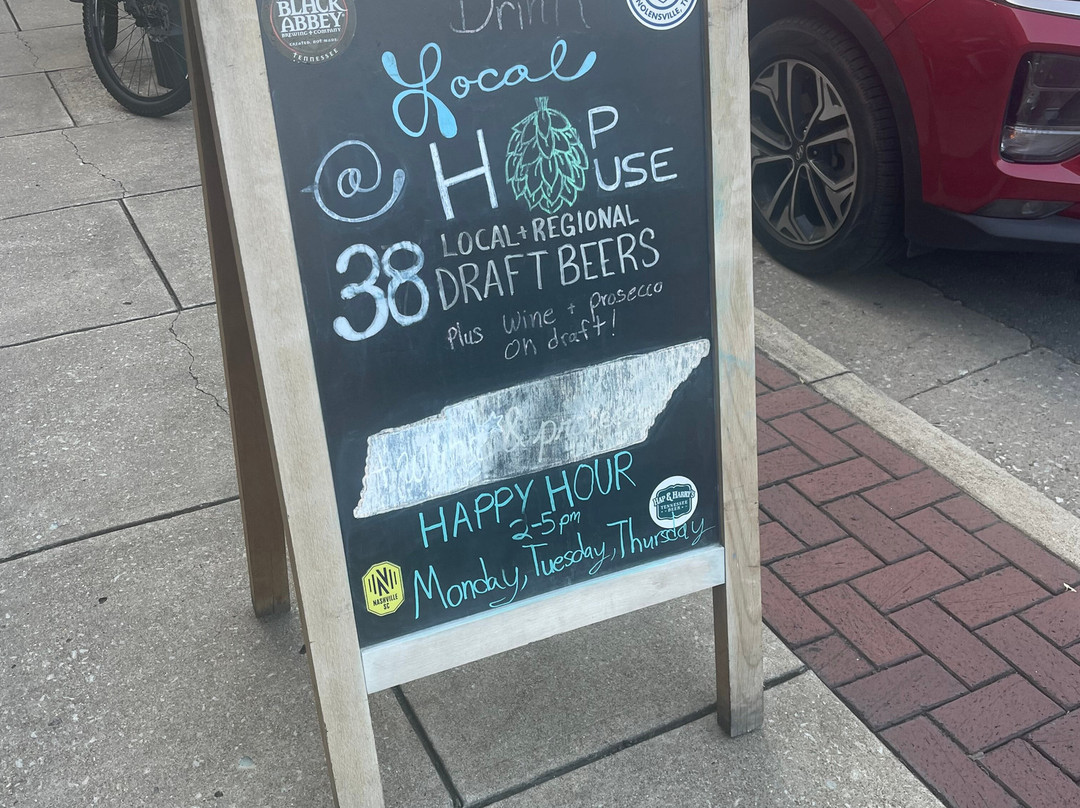 BLACK
ABBEY
BREWING COMPANY
TENNESSEE
NOLENSVILLE, TN
Drink
Local
@ HOP
USE
38 LOCAL + REGIONAL
DRAFT BEERS
Plus Wine + Prosecco
on draft!
&
HAPPY HOUR
2-5pm
Monday, Tuesday, Thursday
HAP & HARRY'S
TENNESSEE
BEER
N
NASHVILLE
SC